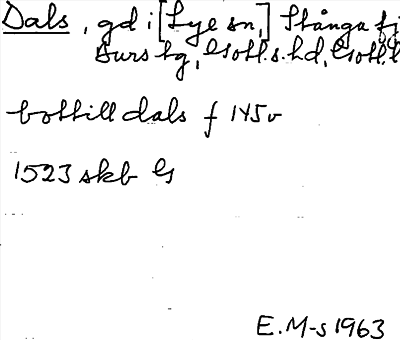 Dals, gd i [Lye sn,] Stånga fj
Burs tg, Gotl.s.hd, Gotl.l
bottill dals f 145v
1523 skb G
E.M-s 1963